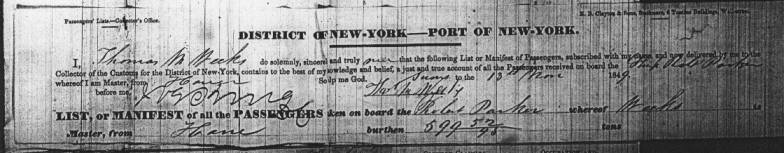 Passengers' Lists.—Collector's Office.
DISTRICT OF NEW-YORK—PORT OF NEW-YORK.
I, Thomas M Weeks do solemnly, sincerely and truly swear that the following List or Manifest of Passengers, subscribed with my name and now delivered by me to the
Collector of the Customs for the District of New-York, contains to the best of my knowledge and belief, a just and true account of all the Passengers received on board the Ship Robt Parker
whereof I am Master, from Havre So help me God. Sworn to the 13th Nov 1849
before me,
LIST, OR MANIFEST of all the PASSENGERS ken on board the Robt Parker whereof Weeks is
Master, from Havre burthen 599 52/95 tons